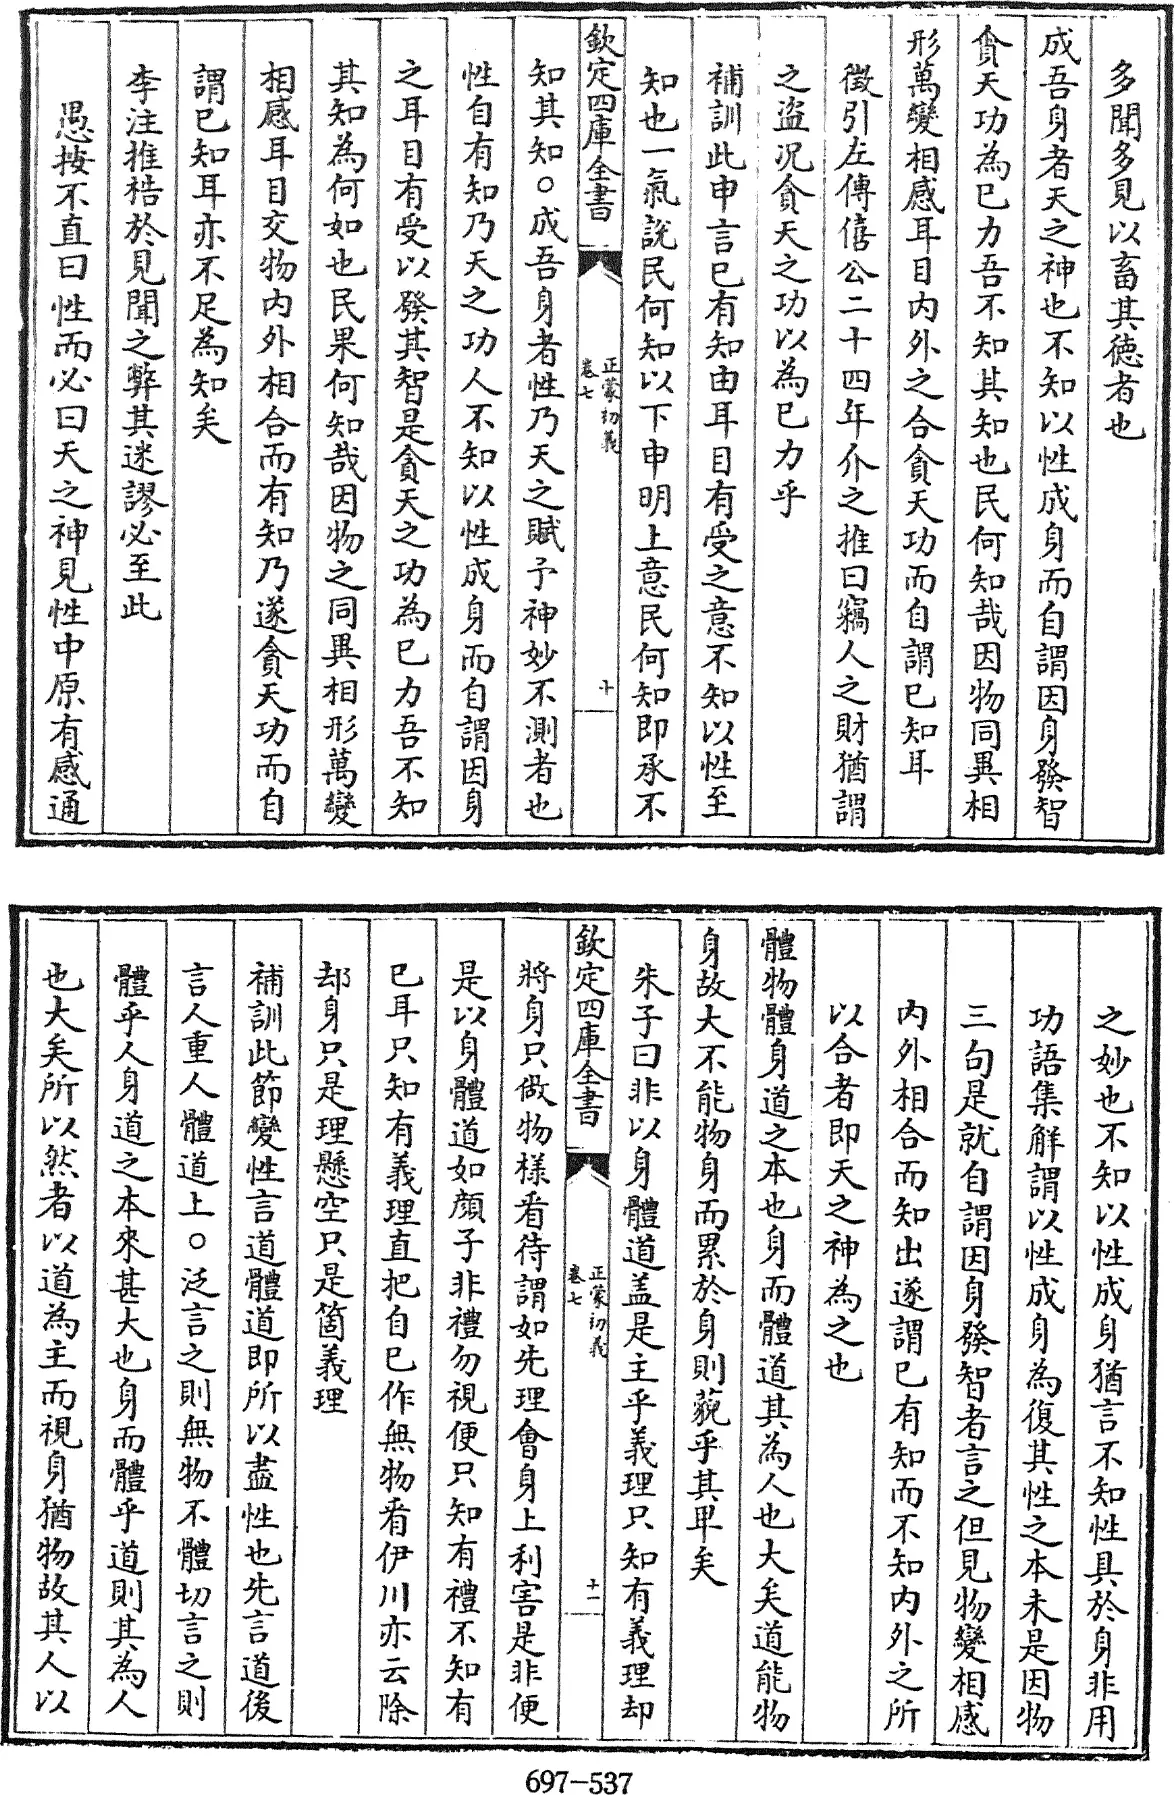 多聞多見以畜其徳者也
成吾身者天之神也不知以性成身而自謂因身發智
貪天功為已力吾不知其知也民何知哉因物同異相
形萬變相感耳目内外之合貪天功而自謂已知耳
徵引左傳僖公二十四年介之推曰竊人之財猶謂
之盗况貪天之功以為已力乎
補訓此申言已有知由耳目有受之意不知以性至
知也一氣説民何知以下申明上意民何知即承不
欽定四庫全書
正蒙初義
卷七
十
知其知○成吾身者性乃天之賦予神妙不測者也
性自有知乃天之功人不知以性成身而自謂因身
之耳目有受以發其智是貪天之功為已力吾不知
其知為何如也民果何知哉因物之同異相形萬變
相感耳目交物内外相合而有知乃遂貪天功而自
謂已知耳亦不足為知矣
李注推梏於見聞之弊其迷謬必至此
愚按不直曰性而必曰天之神見性中原有感通
之妙也不知以性成身猶言不知性具於身非用
功語集解謂以性成身為復其性之本未是因物
三句是就自謂因身發智者言之但見物變相感
内外相合而知出遂謂已有知而不知内外之所
以合者即天之神為之也
體物體身道之本也身而體道其為人也大矣道能物
身故大不能物身而累於身則藐乎其卑矣
朱子曰非以身體道盖是主乎義理只知有義理却
欽定四庫全書
正蒙初義
卷七
十一
將身只做物様看待謂如先理會身上利害是非便
是以身體道如顔子非禮勿視便只知有禮不知有
已耳只知有義理直把自已作無物看伊川亦云除
却身只是理懸空只是箇義理
補訓此節變性言道體道即所以盡性也先言道後
言人重人體道上○泛言之則無物不體切言之則
體乎人身道之本來甚大也身而體乎道則其為人
也大矣所以然者以道為主而視身猶物故其人以
697-537